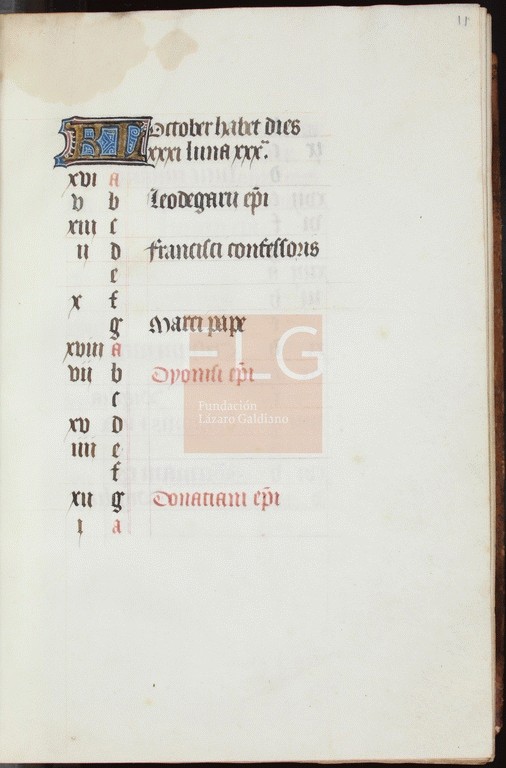 11
KL October habet dies
xxxi luna xxx.
xvi a
v b Leodegarii ep̄i
xiii c
ii d Francisci confessoris
e
x f
g Marci pape
xviii a
vii b Dyonisii ep̄i
c
xv d
iiii e
f
xii g Donatiani ep̄i
i a
FLG
Fundación
Lázaro Galdiano